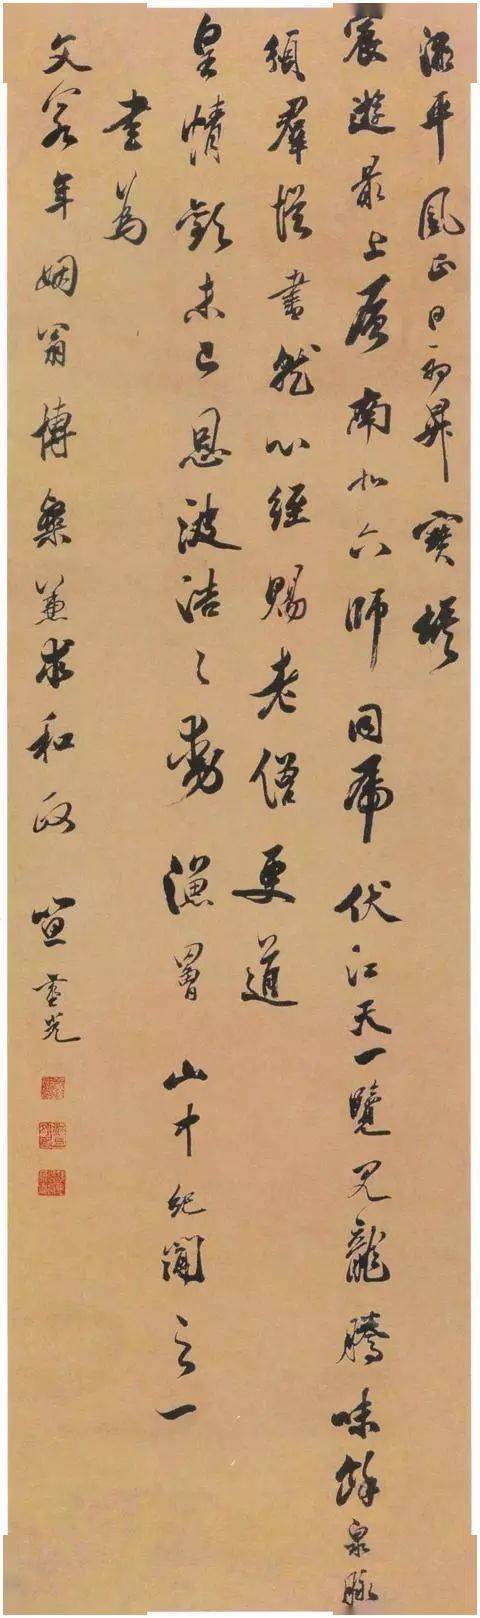 海平風正日初昇寶槎
宸遊最上層南北六師同虎伏江天一覽見龍騰味餘泉脉
須群惟書然心經賜老僧更道
皇情歡未已恩波浩〻動漁罾 山中紀聞之一
書為
文宗年姻翁博粲兼求和政 笪重光